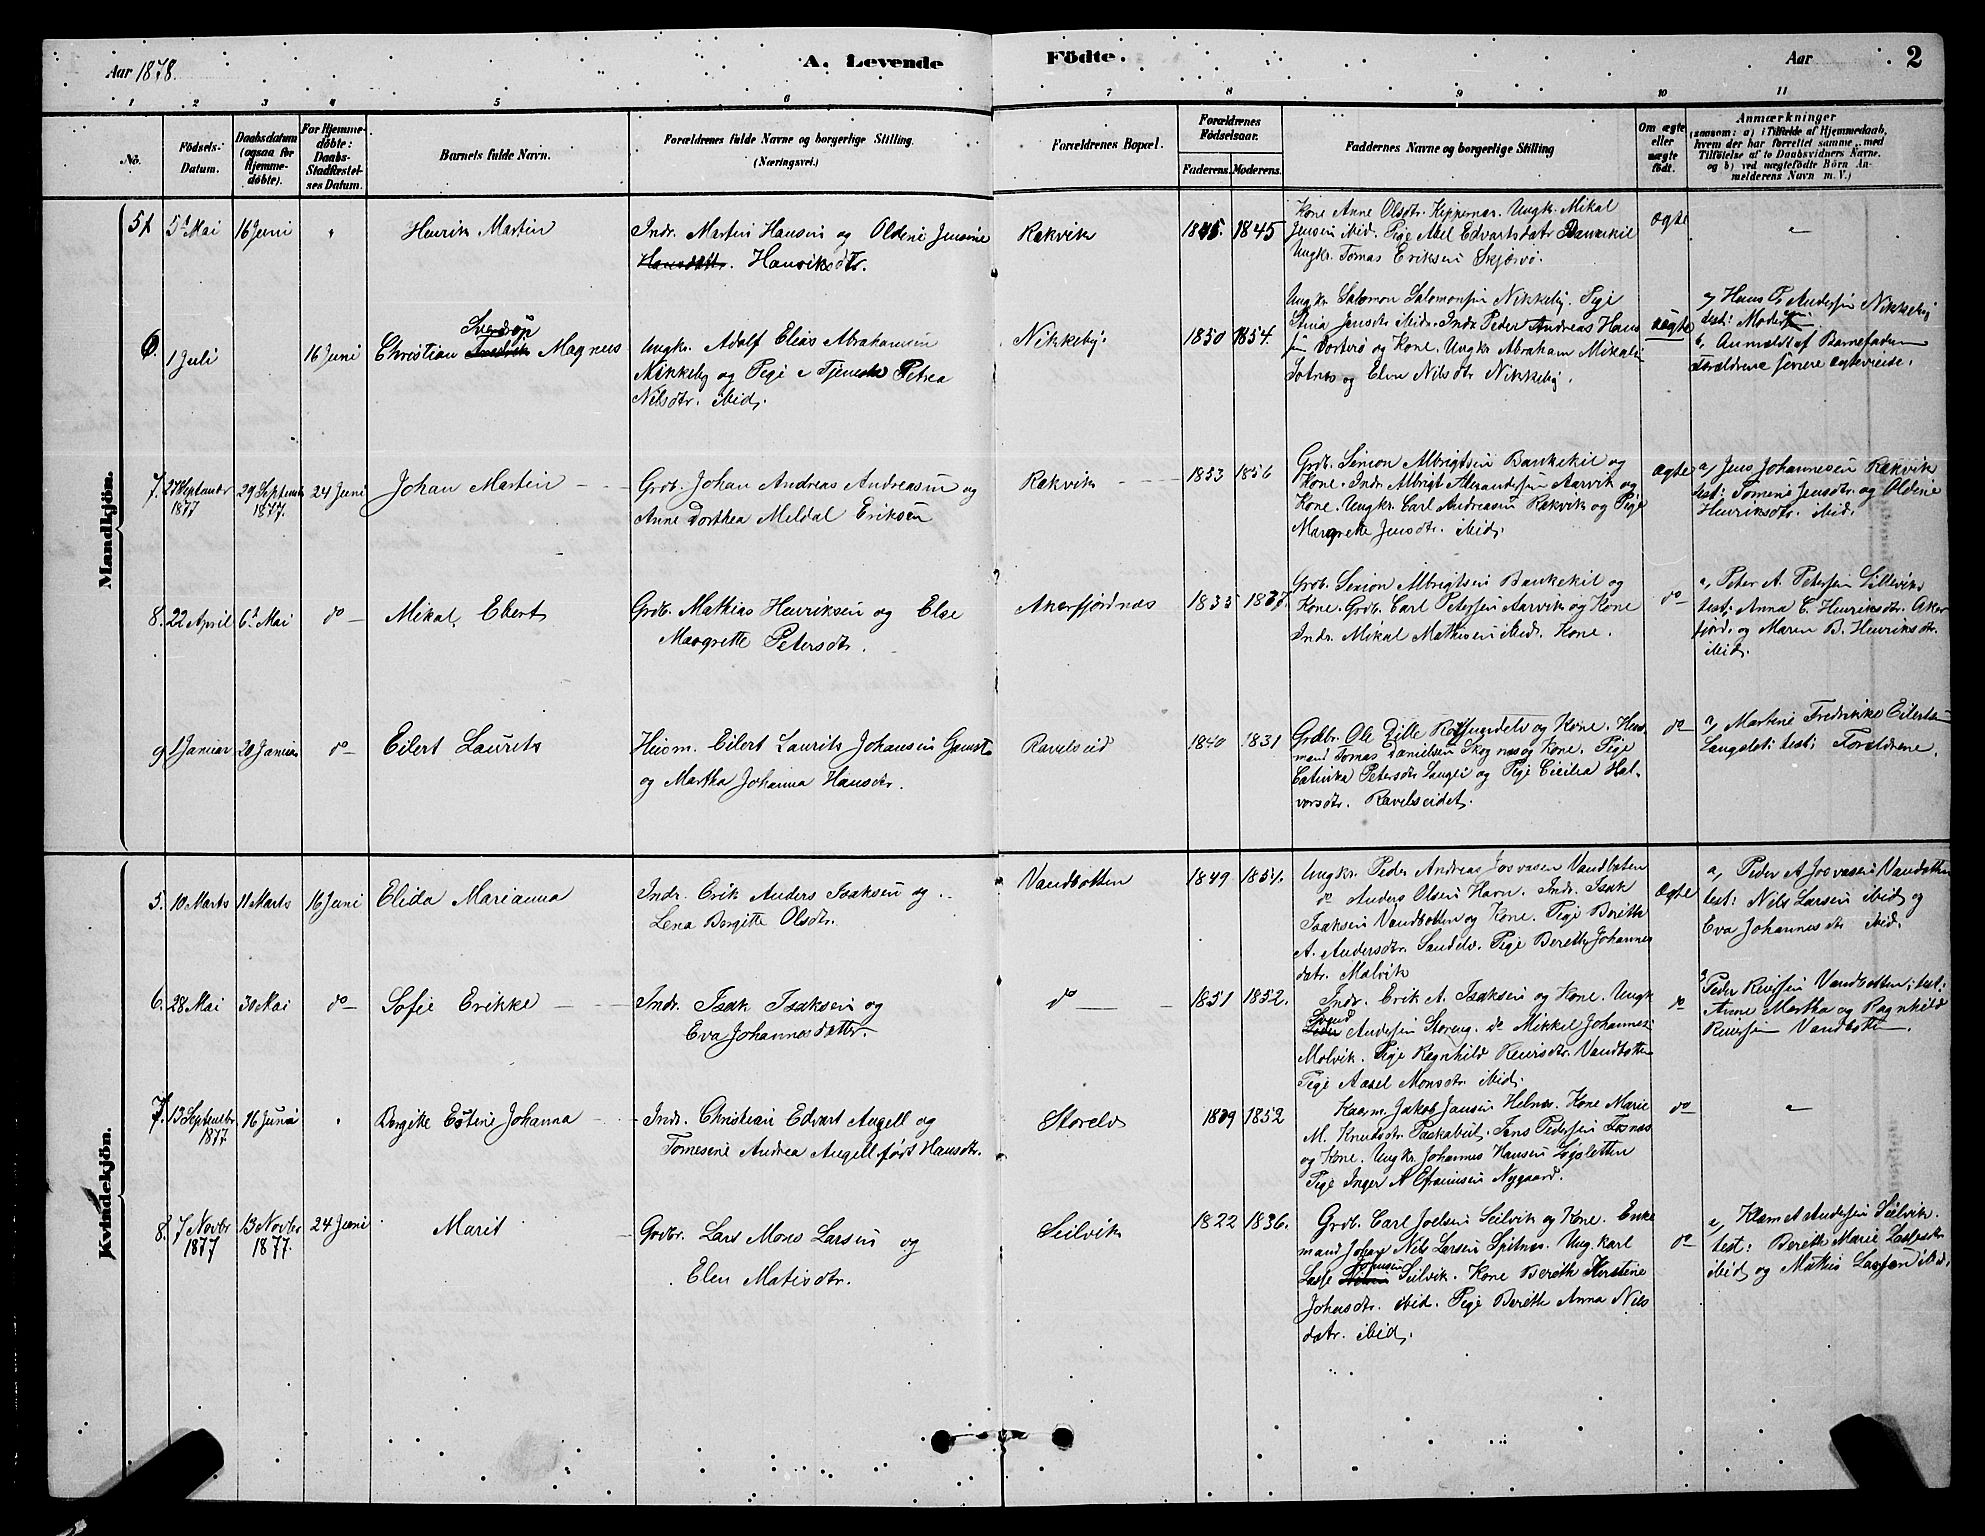 Aar 1878. A. Levende Födte. Aar 2
1 2 3 4 5 6 7 8 9 10 11
No. Födsels-Datum. Daabsdatum (ogsaa for Hjemme-döbte). For Hjemme-döbte: Daabs-Stadfæstel-ses Datum. Barnets fulde Navn. Forældrenes fulde Navne og borgerlige Stilling. (Næringsvei.) Forældrenes Bopæl. Forældrenes Födselsaar. Faderens. Moderens. Faddernes Navne og borgerlige Stilling Om ægte eller uægte födt. Anmærkninger (saasom: a) i Tilfælde af Hjemmedaab, hvem der har forrettet samme, med Tilföielse af to Daabsvidners Navne, og b) ved uægtefödte Börn An-melderens Navn m. V.)
Mandkjön.
5. 5d Mai 16 Juni " Henrik Martin
Indr. Martin Hansen og Oldine Jensine
Hansdattr. Henriksdtr.
Rakvik 1845. 1845
Kone Anne Olsdtr. Kippernæs. Ungkr. Mikal
Jensen ibid. Pige Abel Edvartsdatr Bankekil
Ungkr. Tomas Eriksen Skjærvö.
Ægte "
6. 1 Juli 16 Juni Christian Fredrik Sverdrup Magnus
Ungkr. Adolf Elias Abrahamsen
Nikkeby og Pige e Tjeneste Petrea
Nilsdtr. ibid.
Nikkeby. 1850 1854.
Ungkr Salomon Salomonsen Nikkeby. Pige
Stina Jensdtr ibid. Indr Peder Andreas Hans
sen Vorterö og Kone. Ungkr Abraham Mikals
Totnes og Elen Nilsdtr Nikkeby.
uægte
a, Hans P. Andersen Nikkeby
test: Moder
b, Anmeldt af Barnefaderen
Forældrene senere ægteviede.
7. 27 Septembr 1877 29 Septembr 1877. 24 Juni Johan Martin
Grdb. Johan Andreas Andreasen og
Anne Dorthea Meldal Eriksen
Rakvik 1853 1856
Grdb. Simon Albrigtsen Bankekil og
Kone. Indr. Albrigt Alexandersen Aarvik og
Kone. Ungkr. Carl Andreasen Rakvik og Pige
Margrethe Jensdtr. ibid.
Ægte
a, Jens Johannesen Rakvik
test: Tomine Jensdtr. og Oldine
Henriksdtr. ibid.
8. 22 April 6d Mai do Mikal Ebert
Grdb. Mathias Henriksen og Else
Margrette Petersdtr.
Akerfjordnes 1835 1837.
Grdb. Simon Albrigtsen Bankekil og
Kone. Grdb. Carl Petersen Aarvik og Kone
Indr. Mikal Mathisen ibid. Kone.
do
a, Peter A. Petersen Lillevik
test; Anna E. Henriksdtr. Aker
fjord. og Maren B. Henriksdtr.
ibid.
9 1 Januar 20 Januar do Eilert Laurits
Huusm. Eilert Laurits Johansen Gamst
og Martha Johanna Hansdtr.
Ravelseid 1840 1831
Grdbr. Ole Zille Rotsundelv og Kone. Huus
mand Tomas Danielsen Skognes og Kone. Pige
Catinka Petersdtr Langli og Pige Cicilia Hal-
vorsdtr. Ravelseidet.
do
a, Martine Fredrikke Eilertsen
Langslet: test: Forældrene.
Kvindekjön.
5. 10 Marts 11 Marts 16 Juni Elida Marianna
Indr. Erik Anders Isaksen og
Lena Bergitte Olsdtr.
Vandbotten 1849 1851.
Ungkr. Peder Andreas Josvasen Vandboten
do Anders Olsen Havn. Indr. Isak
Isaksen Vandbotten og Kone. Pige Berith
A. Andersdtr. Sandelv. Pige Berethe Johannes
datr. Malvik
Ægte
a, Peder A Josvasen Vandbotten
test: Nils Larsen ibid og
Eva Johannesdtr ibid.
6. 28 Mai 30 Mai do Sofie Erikke
Indr. Isak Isaksen og
Eva Johannesdatter.
do 1851 1852.
Indr. Erik A. Isaksen og Kone. Ungk
Peder Svend Andersen Storeng. do Mikkel Johannes
Molvik. Pige Ragnhild Reiersdtr. Vandbotten
Pige Aasel Monsdtr. ibid.
do
a, Peder Reiersen Vandbotten; test:
Anne Martha og Ragnhild
Reiersen Vandbotten.
7. 13 Septembr 1877 16 Juni " Bergitte Estine Johanna
Indr. Christian Edvart Angell og
Tomesine Andrea Angell födt Hansdtr.
Storelv 1849 1852
Kaarm. Jakob Jansen Helnes. Kone Marie
M. Knudsdtr. Paskabeil. Jens Pedersen Taanes
og Kone. Ungkr. Johannes Hansen Lögsletten
Pige Inger A Efraimsen Nygaard.
do "
8. 7 Novbr 1877 13 Novbr 1877. 24 Juni Marit
Grdbr. Lars Mons Larsen og
Elen Matisdtr.
Seilvik 1822 1836.
Grdb. Carl Joelsen Seilvik og Kone. Enke
mand Johan Nils Larsen Spilnes. Ungkarl
Lasse Seilvik. Kone Berith Kirstine
Johansdtr. ibid. Pige Berith Anna Nils
datr. ibid.
do
a, Klem A Andersen Seilvik.
test: Berith Marie
ibid og Mathis Larsen ibid.